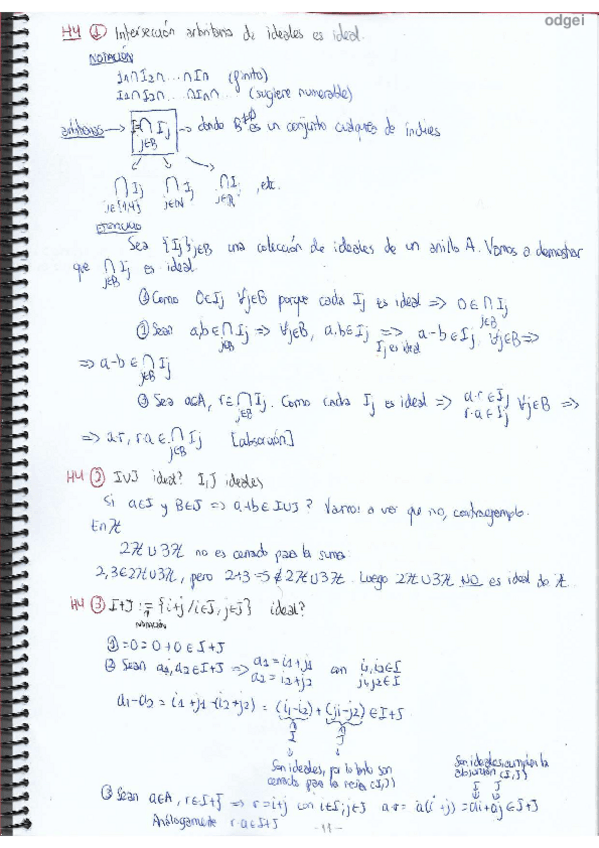 odgei
H4 ① Intersección arbitraria de ideales es ideal.
NOTACIÓN
I₁∩I₂∩...∩In (finito)
I₁∩I₂∩...∩In∩... (sugiere numerable)
arbitraria → I=∩ Ij → donde B≠∅ es un conjunto cualquiera de índices
j∈B
∩ Ij ∩ Ij ∩ I , etc.
j∈{1,4} j∈N j∈R
EJERCICIO
Sea {Ij}j∈B una colección de ideales de un anillo A. Vamos a demostrar
que ∩ Ij es ideal.
j∈B
Como 0∈Ij ∀j∈B porque cada Ij es ideal => 0∈∩ Ij
j∈B
① Sean a,b∈∩ Ij => ∀j∈B, a,b∈Ij => a-b∈Ij ∀j∈B =>
j∈B Ij es ideal
=> a-b∈∩ Ij
j∈B
Sea a∈A, r∈∩ Ij. Como cada Ij es ideal => a·r∈Ij ∀j∈B =>
j∈B r·a∈Ij
=> a·r, r·a∈∩ Ij [absorción]
j∈B
H4 ② I∪J ideal? I,J ideales
Si a∈I y B∈J => a+b∈I∪J? Vamos a ver que no, contraejemplo.
En ℤ
2ℤ∪3ℤ no es cerrado para la suma
2,3∈2ℤ∪3ℤ, pero 2+3=5∉2ℤ∪3ℤ. Luego 2ℤ∪3ℤ NO es ideal de ℤ.
H4 ③ I+J := {i+j / i∈I, j∈J} ideal?
NOTACIÓN
① =0=0+0∈I+J
② Sean a₁,a₂∈I+J => a₁=i₁+j₁ con i₁,i₂∈I
a₂=i₂+j₂ j₁,j₂∈J
a₁-a₂=i₁+j₁-(i₂+j₂)=(i₁-i₂)+(j₁-j₂)∈I+J
I J
Son ideales, por lo tanto son
cerrados para la resta (I,J)
Son ideales, cumplen la
absorción (I,J)
I J
③ Sean a∈A, r∈I+J => r=i+j con i∈I, j∈J a·r=a(i+j)=ai+aj∈I+J
Análogamente r·a∈I+J
-11-